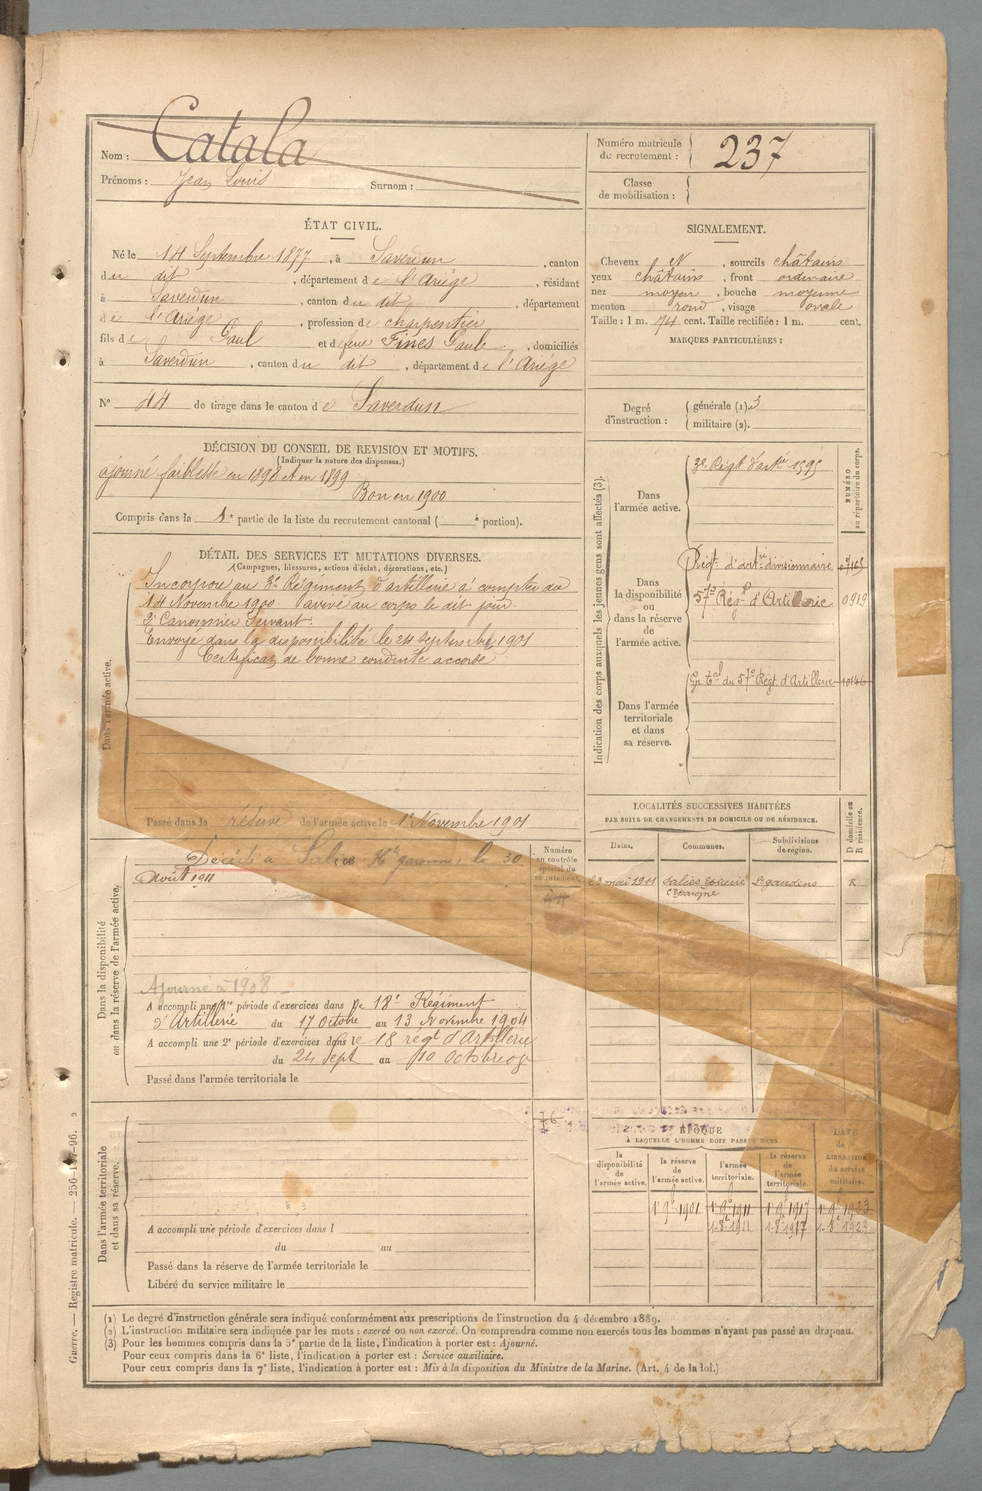 Nom : Catala
Prénoms : Jean Louis Surnom :
Numéro matricule
de recrutement : 237
Classe
de mobilisation :
ÉTAT CIVIL.
Né le 14 Septembre 1877, à Saverdun, canton
du dit, département de l'Ariège, résidant
à Saverdun, canton du dit, département
de l'Ariège, profession de charpentier
fils de Paul et de feue Fines Paule, domiciliés
à Saverdun, canton du dit, département de l'Ariège
N° 44 de tirage dans le canton de Saverdun
SIGNALEMENT.
Cheveux N, sourcils châtains
yeux châtains, front ordinaire
nez moyen, bouche moyenne
menton rond, visage ovale
Taille : 1 m. 74 cent. Taille rectifiée : 1 m. cent.
MARQUES PARTICULIÈRES :
Degré
d'instruction :
générale (1) 3
militaire (2).
DÉCISION DU CONSEIL DE REVISION ET MOTIFS.
(Indiquer la nature des dispenses.)
ajourné faiblesse en 1898 et en 1899
Bon en 1900
Compris dans la 1e partie de la liste du recrutement cantonal ( e portion).
DÉTAIL DES SERVICES ET MUTATIONS DIVERSES.
(Campagnes, blessures, actions d'éclat, décorations, etc.)
Dans l'armée active.
Incorporé au 3e Régiment d'artillerie à compter du
14 Novembre 1900 Arrivé au corps le dit jour.
2e Canonnier Servant.
Envoyé dans la disponibilité le 24 Septembre 1901
Certificat de bonne conduite accordé
Passé dans la réserve de l'armée active le 1er Novembre 1901
Indication des corps auxquels les jeunes gens sont affectés (3).
NUMÉRO
au répertoire du corps.
Dans
l'armée active.
3e Régt d'artie 1595
Dans
la disponibilité
ou
dans la réserve
de l'armée
active.
Régt d'artie divisionnaire
57e Régt d'Artillerie 0919
Dans l'armée
territoriale
et dans
sa réserve.
Gr. tal du 57e Régt d'Artillerie
LOCALITÉS SUCCESSIVES HABITÉES
PAR SUITE DE CHANGEMENTS DE DOMICILE OU DE RÉSIDENCE.
Dates. Communes. Subdivisions
de région. D domicile ou
R résidence.
23 mai 1911 Salies St gaudens R
Espagne
Dans la disponibilité
ou dans la réserve de l'armée active.
Numéro
au contrôle
spécial du
recrutement.
Décédé à Salies Hte garonne, le 30
Août 1911
Ajourné à 1908
A accompli une 1re période d'exercices dans le 18e Régiment
d'Artillerie du 17 Octobre au 13 Novembre 1904
A accompli une 2e période d'exercices dans le 18 régt d'Artillerie
du 24 Sept au 10 Octobre
Passé dans l'armée territoriale le
Dans l'armée territoriale
et dans sa réserve.
A accompli une période d'exercices dans l
du au
Passé dans la réserve de l'armée territoriale le
Libéré du service militaire le
ÉPOQUE
À LAQUELLE L'HOMME DOIT PASSER DANS
DATE
de
LIBÉRATION
du service
militaire.
la
disponibilité
de l'armée
active.
la réserve
de
l'armée active.
l'armée
territoriale.
la réserve
de
l'armée
territoriale.
1er 9bre 1901 1er 9bre 1911 1er 9bre 1917 1er 9bre 1923
1.8e 1911 1.8e 1917 1.8e 1923
(1) Le degré d'instruction générale sera indiqué conformément aux prescriptions de l'instruction du 4 décembre 1889.
(2) L'instruction militaire sera indiquée par les mots : exercé ou non exercé. On comprendra comme non exercés tous les hommes n'ayant pas passé au drapeau.
(3) Pour les hommes compris dans la 5e partie de la liste, l'indication à porter est : Ajourné.
Pour ceux compris dans la 6e liste, l'indication à porter est : Service auxiliaire.
Pour ceux compris dans la 7e liste, l'indication à porter est : Mis à la disposition du Ministre de la Marine. (Art. 4 de la loi.)
Guerre. — Registre matricule. — 256-147-96. 2